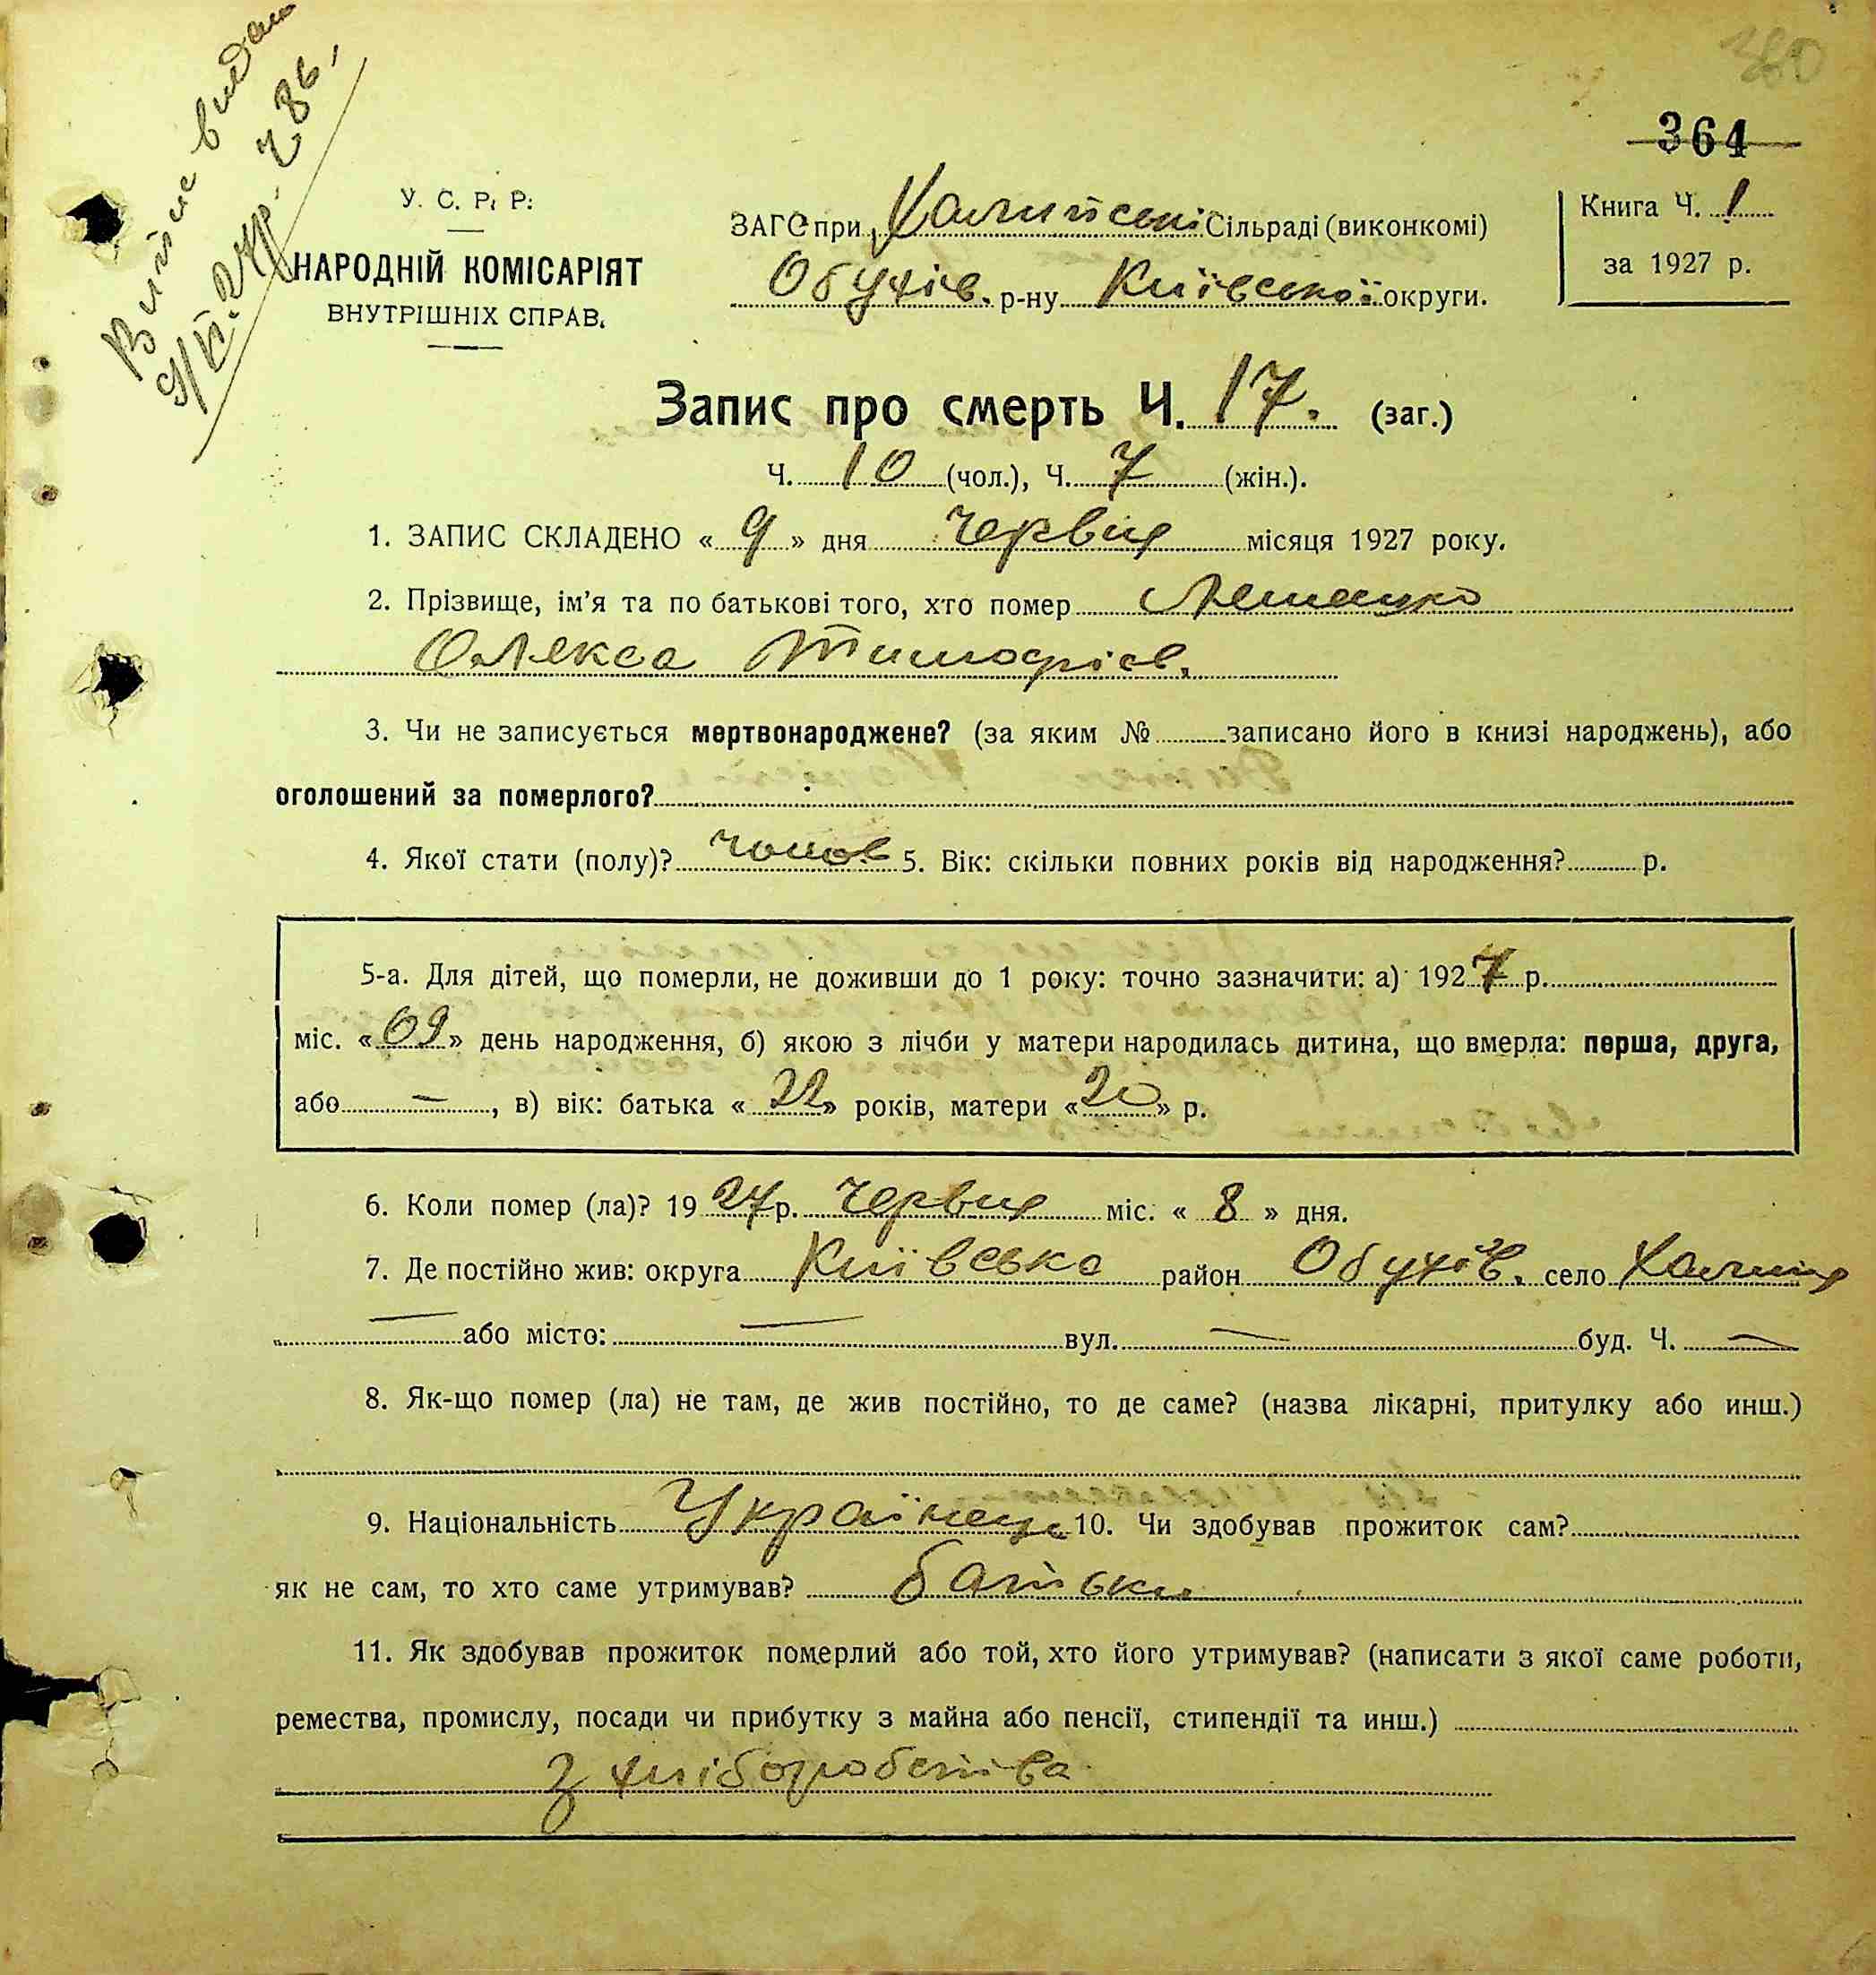 Витяг видано
9/VI. 27р. Ч 86,
380
364
У. С. Р. Р.
НАРОДНІЙ КОМІСАРІЯТ
ВНУТРІШНІХ СПРАВ.
ЗАГС при Халипські Сільраді (виконкомі)
Обухів. р-ну Київської округи.
Книга Ч. 1
за 1927 р.
Запис про смерть Ч. 17. (заг.)
Ч. 10 (чол.), Ч. 7 (жін.).
1. ЗАПИС СКЛАДЕНО « 9 » дня Червня місяця 1927 року.
2. Прізвище, ім’я та по батькові того, хто помер
Олекса Тимофієв.
3. Чи не записується мертвонароджене? (за яким № записано його в книзі народжень), або
оголошений за померлого?
4. Якої стати (полу)? чолов 5. Вік: скільки повних років від народження? р.
5-а. Для дітей, що померли, не доживши до 1 року: точно зазначити: а) 1927 р.
міс. « 09 » день народження, б) якою з лічби у матери народилась дитина, що вмерла: перша, друга,
або —, в) вік: батька « 22 » років, матери « 20 » р.
6. Коли помер (ла)? 1927 р. Червня міс. « 8 » дня.
7. Де постійно жив: округа Київська район Обухів. село Халипя
— або місто: — вул. — буд. Ч. —
8. Як-що помер (ла) не там, де жив постійно, то де саме? (назва лікарні, притулку або инш.)
9. Національність Українець 10. Чи здобував прожиток сам?
як не сам, то хто саме утримував? батьки
11. Як здобував прожиток померлий або той, хто його утримував? (написати з якої саме роботи,
ремества, промислу, посади чи прибутку з майна або пенсії, стипендії та инш.)
з хліборобства